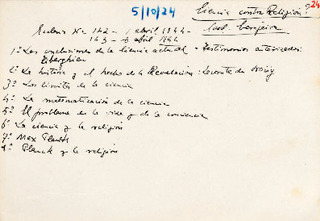 5/10/24
Ciencia contra Religión?
24
Nº 162 - 1 abril 1944 -
163 - 8 abril 1944
1º Las conclusiones de la ciencia actual - Testimonios autorizados:
2º La historia y el hecho de la Revelación: Lecomte de Noüy
3º Los límites de la ciencia
4º La matematización de la ciencia
5º El problema de la vida y de la conciencia
6º La ciencia y la religión
7º Max Planck
8º Planck y la religión